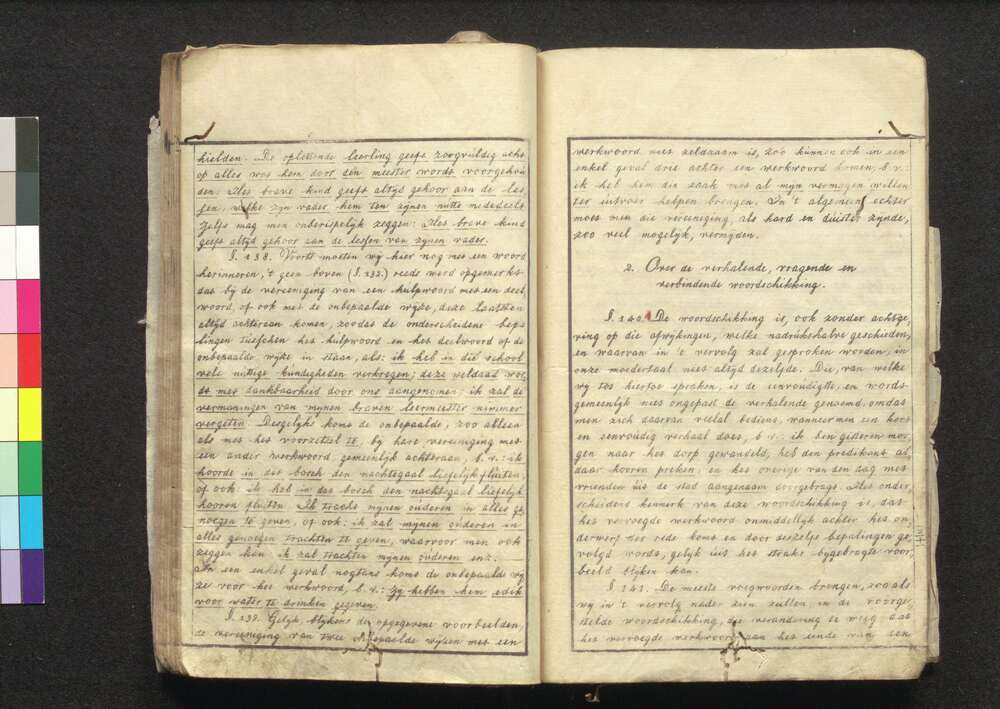 hielden. De oplettende leerling geeft zorgvuldig acht
op alles wat hem door den meester wordt voorgehou
den. Het brave kind geeft altyd gehoor aan de les
sen, welke zyn vader hem ten zynen nutte mededeelt
Zelfs mag men onberispelyk zeggen: Het brave kind
geeft altyd gehoor aan de lessen van zynen vader.
§. 138. Voorts moeten wy hier nog met een woord
herinneren, 't geen boven (§. 132.) reeds werd opgemerkt
dat by de vereeniging van een hulpwoord met een deel
woord, of ook met de onbepaalde wyze, deze laatsten
altyd achteraan komen, zoodat de onderscheidene bepa
lingen tusschen het hulpwoord en het deelwoord of de
onbepaalde wyze in staan, als: ik heb in die school
vele nuttige kundigheden verkregen; deze weldaad wor
de met dankbaarheid door ons aangenomen; ik zal de
vermaningen van mynen braven leermeester nimmer
vergeten. Desgelyks komt de onbepaalde, zoo alleen
als met het voorzetsel te, by hare vereeniging met
een ander werkwoord, gemeenlyk achteraan, b.v.: ik
hoorde in die bosch den nachtegaal liefelyk fluiten,
of ook: ik heb in dat bosch den nachtegaal liefelyk
hooren fluiten. Ik tracht mynen ouderen in alles ge
noegen te geven, of ook: ik zal mynen ouderen in
alles genoegen trachten te geven, waarvoor men ook
zeggen kan: ik zal trachten mynen ouderen enz.
In een enkel geval nogtans komt de onbepaalde wy
ze voor het werkwoord, b.v.: zy hebben hem edik
voor water te drinken gegeven.
§. 139. Gelyk, blykens de opgegevene voorbeelden,
de vereeniging van twee onbepaalde wyzen met een
werkwoord niet zeldzaam is, zoo kunnen ook in een
enkel geval drie achter een werkwoord komen, b.v.:
ik heb hem die zaak met al myn vermogen willen
ter uitvoer helpen brengen. In 't algemeen echter
moet men die vereeniging, als hard en duister zynde,
zoo veel mogelyk, vermyden.
2. Over de verhalende, vragende en
verbindende woordschikking.
§. 140. De woordschikking is, ook zonder achtge,
ving op die afwykingen, welke nadrukshalve geschieden,
en waarvan in 't vervolg zal gesproken worden, in
onze moedertaal niet altyd dezelfde. Die, van welke
wy tot hiertoe spraken, is de eenvoudigste, en wordt
gemeenlyk niet ongepast de verhalende genoemd, omdat
men zich daarvan veelal bedient, wanneer men een kort
en eenvoudig verhaal doet, b.v.: ik ben gisteren mor
gen naar het dorp gewandeld, heb den predikant al,
daar hooren preken, en het overige van den dag met
vrienden uit de stad aangenaam doorgebragt. Het onder,
scheidend kenmerk van deze woordschikking is, dat
het vervoegde werkwoord onmiddellyk achter het on,
derwerp der rede komt en door deszelfs bepalingen ge,
volgd wordt, gelyk uit het straks bygebragte voor,
beeld blyken kan.
§. 141. De meeste voegwoorden brengen, zoo als
wy in 't vervolg nader zien zullen in de voorge,
stelde woordschikking, die verandering te weeg dat
het vervoegde werkwoord aan het einde van een